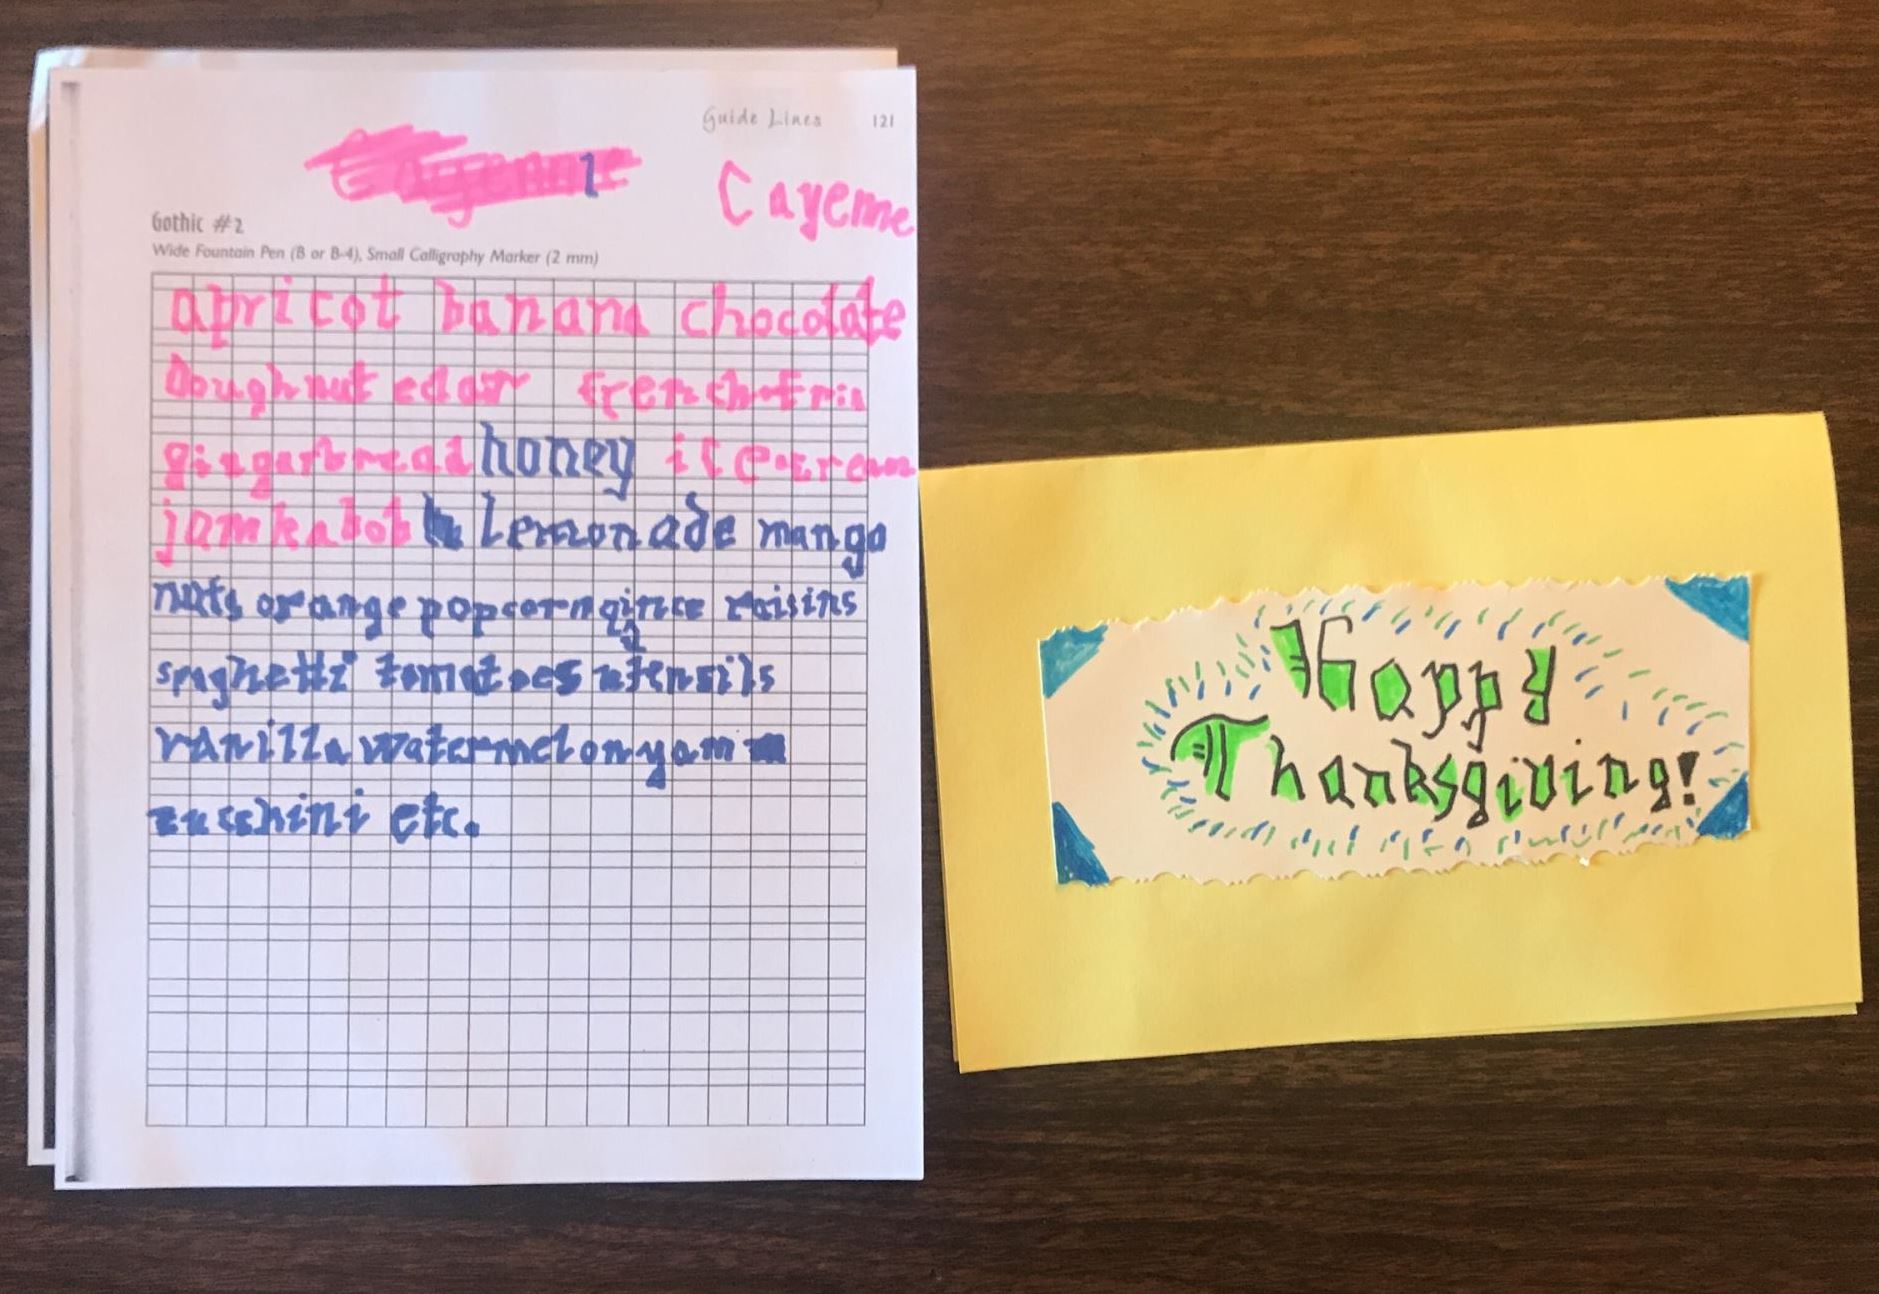 Guide Lines 121
Cayenne
Gothic #2
Wide Fountain Pen (B or B-4), Small Calligraphy Marker (2 mm)
apricot banana chocolate
Doughnut french-fris
gingerbread honey ice-cream
jam kabob Lemonade mango
nuts orange popcorn qince raisins
spaghetti tomatoes utensils
vanilla watermelon yam
zucchini etc.
Happy
Thanksgiving!